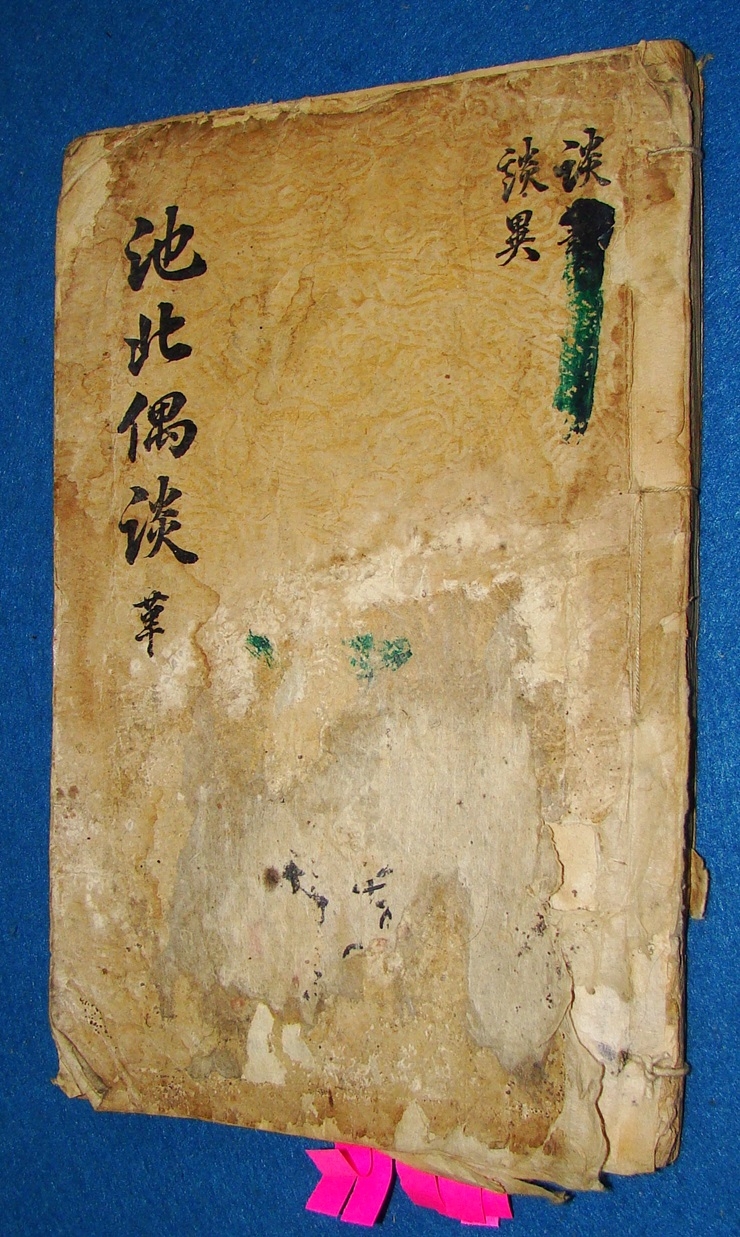 談
談異
池北偶談 革